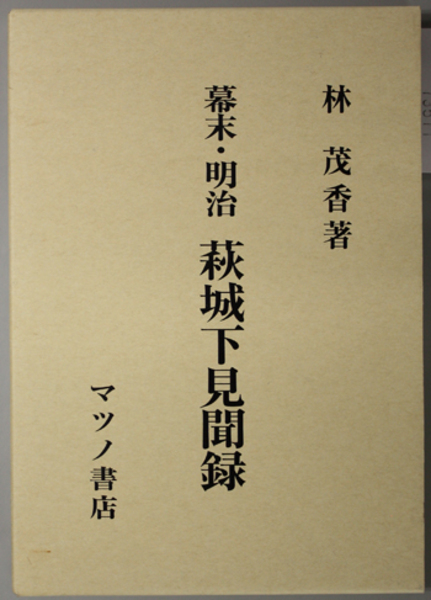 林 茂香著
幕末・明治 萩城下見聞録
マツノ書店